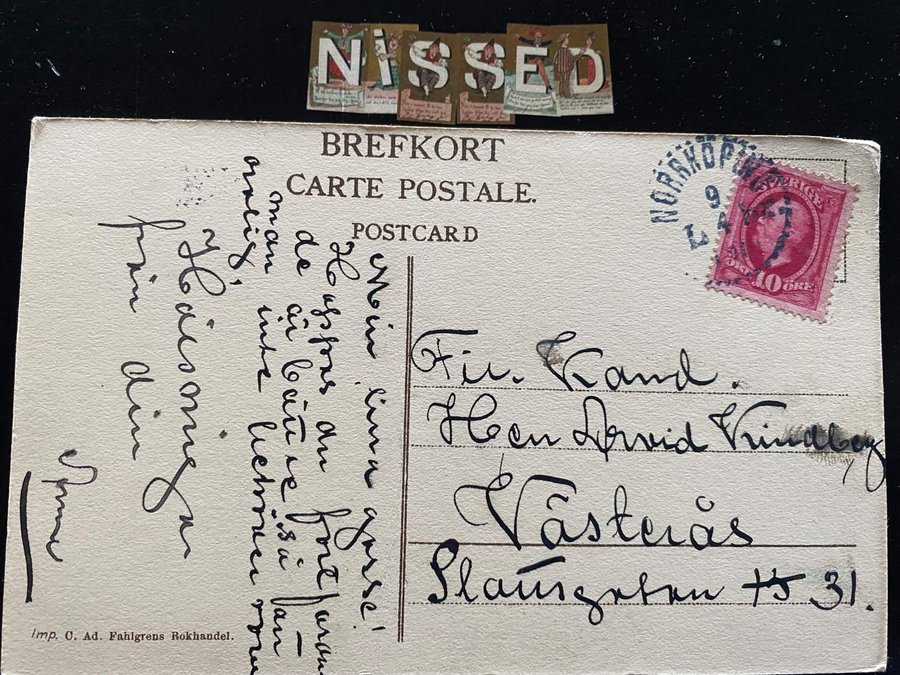 NiSSED
BREFKORT
CARTE POSTALE.
POSTCARD
NORRKÖPING
9
SVERIGE
10 ÖRE
Min lilla gosse!
Hoppas du fortfarande
är bättre så får
man inte
orolig
Hälsningar
från din
Fil. Kand.
Herr Arvid Kindberg
Västerås
Slånsgatan 15 31.
Imp. C. Ad. Fahlgrens Bokhandel.